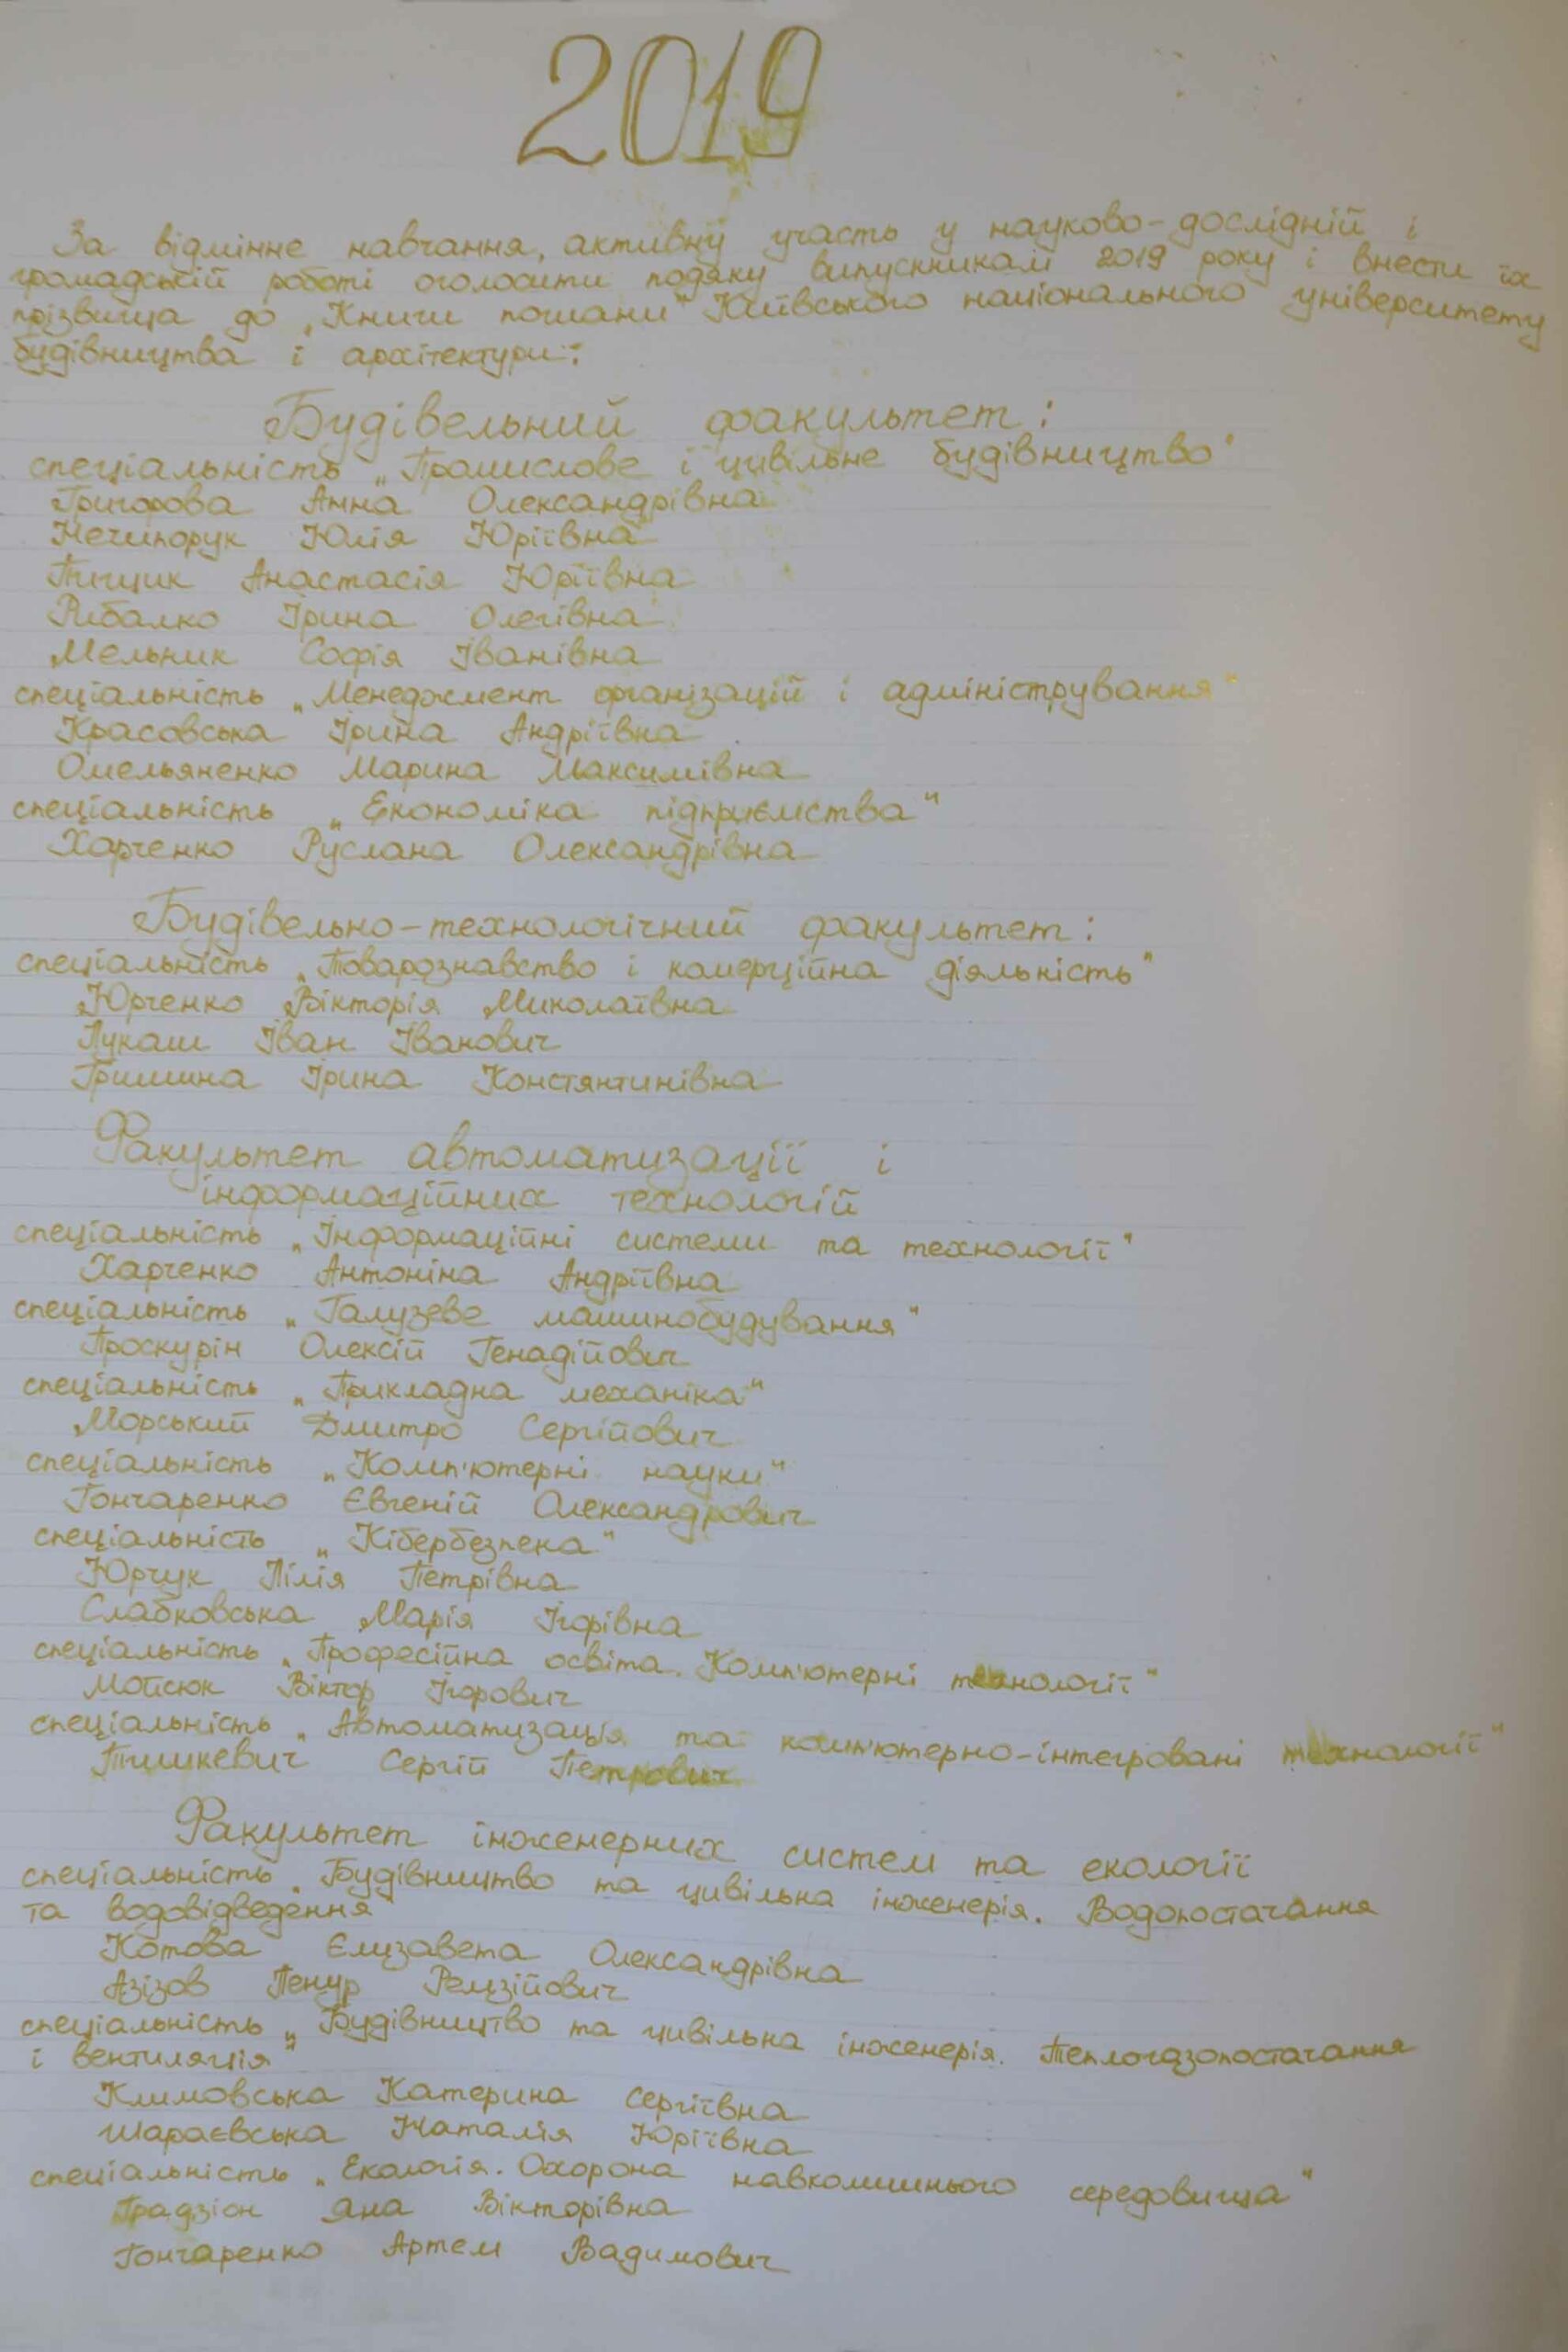 2019
За відмінне навчання, активну участь у науково-дослідній і
громадській роботі оголосити подяку випускникам 2019 року і внести їх
прізвища до „Книги пошани" Київського національного університету
будівництва і архітектури:
Будівельний факультет:
спеціальність „Промислове і цивільне будівництво"
Григорова Анна Олександрівна
Нечипорук Юлія Юріївна
Пищик Анастасія Юріївна
Рибалко Ірина Олегівна
Мельник Софія Іванівна
спеціальність „Менеджмент організацій і адміністрування"
Красовська Ірина Андріївна
Омельяненко Марина Максимівна
спеціальність „Економіка підприємства"
Харченко Руслана Олександрівна
Будівельно-технологічний факультет:
спеціальність „Товарознавство і комерційна діяльність"
Юрченко Вікторія Миколаївна
Лукаш Іван Іванович
Гришина Ірина Константинівна
Факультет автоматизації і
інформаційних технологій
спеціальність „Інформаційні системи та технології"
Харченко Антоніна Андріївна
спеціальність „Галузеве машинобудування"
Проскурін Олексій Генадійович
спеціальність „Прикладна механіка"
Морський Дмитро Сергійович
спеціальність „Комп'ютерні науки"
Гончаренко Євгеній Олександрович
спеціальність „Кібербезпека"
Юрчук Лілія Петрівна
Слабковська Марія Ігорівна
спеціальність „Професійна освіта. Комп'ютерні технології"
Мойсюк Віктор Ігорович
спеціальність „Автоматизація та комп'ютерно-інтегровані технології"
Тишкевич Сергій Петрович
Факультет інженерних систем та екології
спеціальність „Будівництво та цивільна інженерія. Водопостачання
та водовідведення"
Котова Єлизавета Олександрівна
Азізов
спеціальність „Будівництво та цивільна інженерія. Теплогазопостачання
і вентиляція"
Климовська Катерина Сергіївна
Шараєвська Наталія Юріївна
спеціальність „Екологія. Охорона навколишнього середовища"
Градзіон Яна Вікторівна
Гончаренко Артем Вадимович